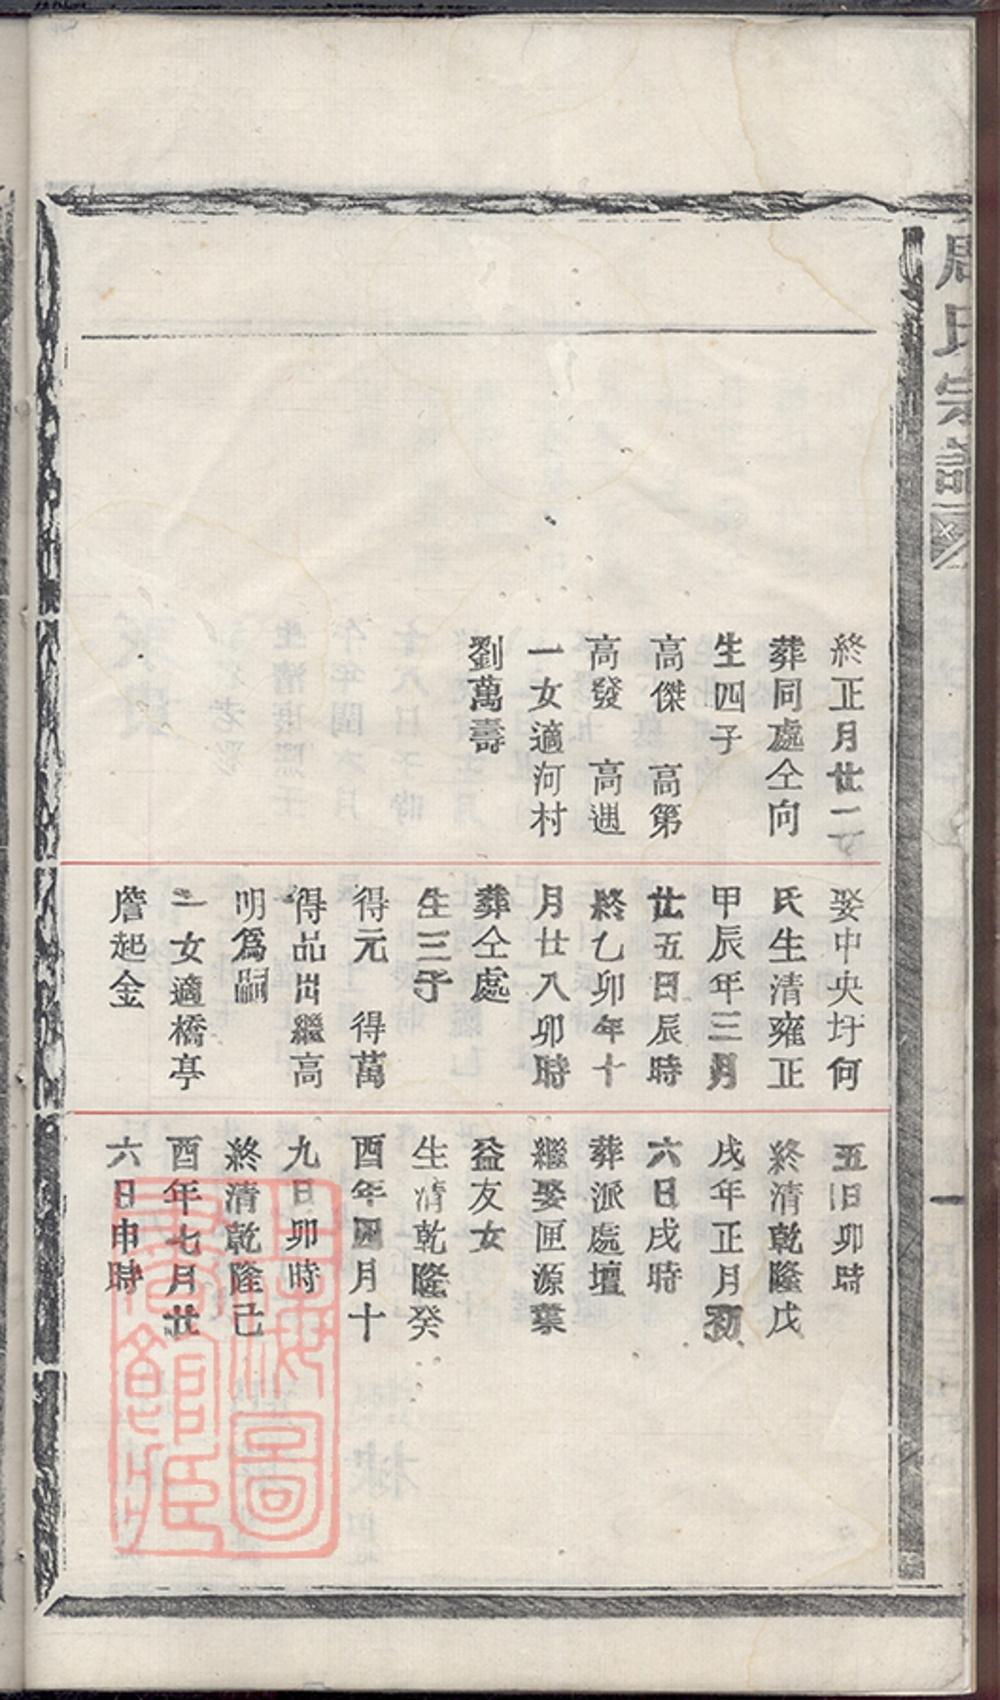 周氏宗譜
終正月廿一
葬同處仝向
生四子
高傑　高第
高發　高遇
一女適河村
劉萬壽
娶中央圩何
氏生清雍正
甲辰年三月
廿五日辰時
終乙卯年十
月廿八卯時
葬仝處
生三子
得元　得萬
得品出繼高
明爲嗣
二女適橋亭
詹起金
五日卯時
終清乾隆戊
戌年正月初
六日戌時
葬派處壇
繼娶匣源葉
益友女
生清乾隆癸
酉年四月十
九日卯時
終清乾隆己
酉年七月廿
六日申時
上海圖書館藏